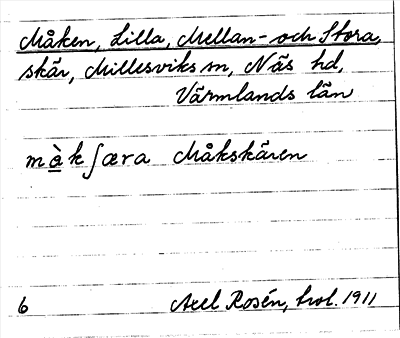 Måken, Lilla, Mellan- och Stora,
skär, Millesviks sn, Näs hd,
Värmlands län
màkʃæra Måkskären
6 Axel Rosén, trol. 1911